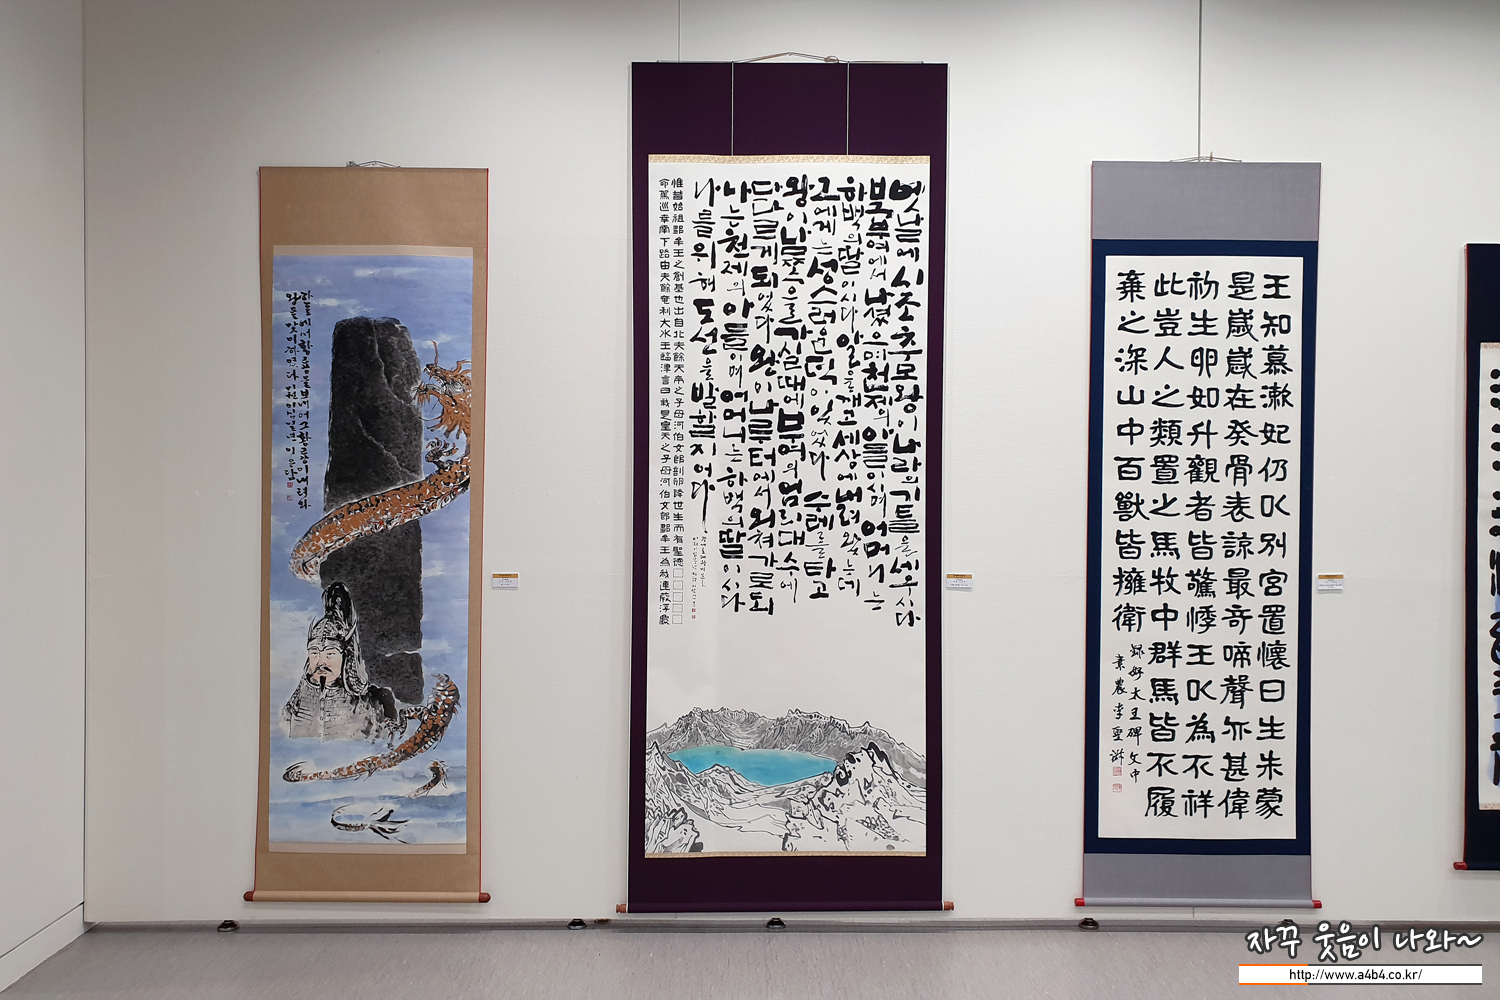 하늘에서 황룡을 보내어 그 황룡이 내려와
왕을 맞이하였다 이천이십일년 이은담
옛날에 시조 추모왕이 나라의 기틀을 세우시다
북부여에서 나셨으며 천제의 아들이시며 어머니는
하백의 딸이시다 알을 깨고 세상에 내려왔는데
그에게는 성스러운 덕이 있었다 수레를 타고
왕이 남쪽으로 가실 때에 부여의 엄리대수에
다다르게 되었다 왕이 나루터에서 외쳐 가로되
나는 천제의 아들이며 어머니는 하백의 딸이시다
나를 위해 도선을 발할지어다
惟昔始祖鄒牟王之創基也出自北夫餘天帝之子母河伯女郎剖卵降世生而有聖德□□□□□
命駕巡幸南下路由夫餘奄利大水王臨津言曰我是皇天之子母河伯女郎鄒牟王為我連葭浮龜
王知慕漱妃仍以別宮置懷日生朱蒙
是歲歲在癸骨表諒最奇啼聲亦甚偉
初生卵如升觀者皆驚悸王以為不祥
此豈人之類置之馬牧中群馬皆不履
棄之深山中百獸皆擁衛
錄好太王碑文中
자꾸 웃음이 나와~
http://www.a4b4.co.kr/